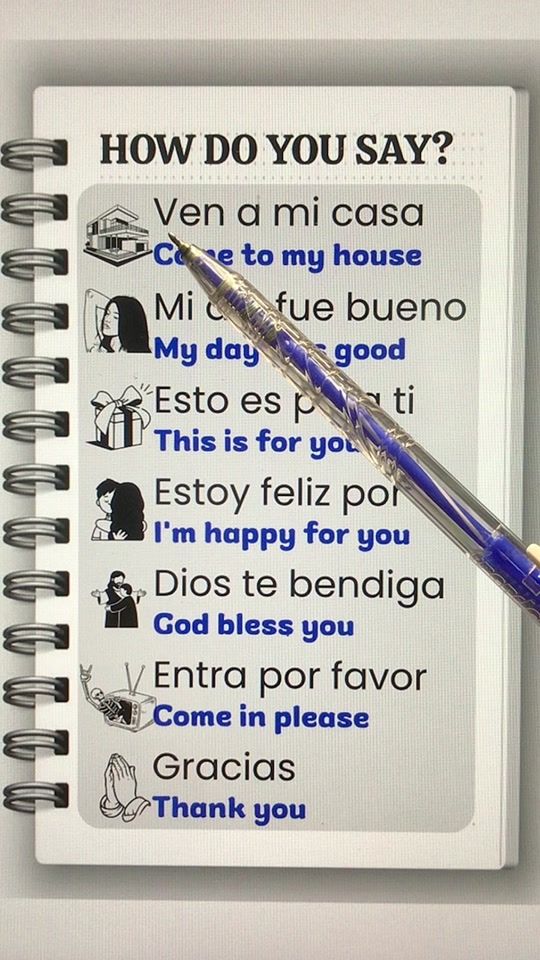 HOW DO YOU SAY?
Ven a mi casa
to my house
Mi fue bueno
My day good
Esto es ti
This is for you
Estoy feliz por
I'm happy for you
Dios te bendiga
God bless you
Entra por favor
Come in please
Gracias
Thank you